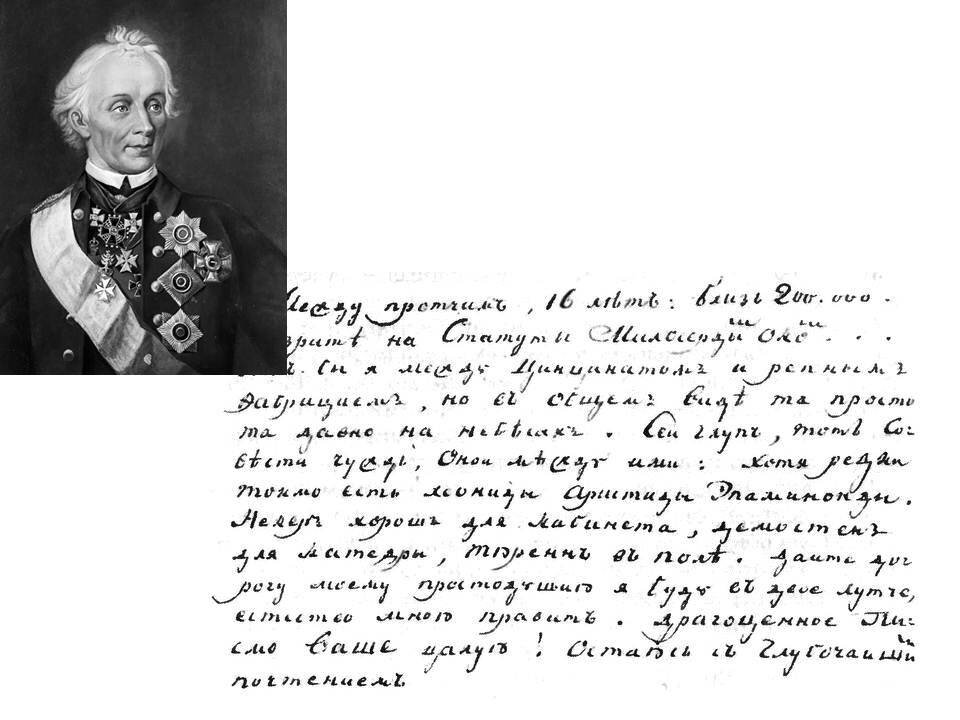 Между протчимъ, 16 лѣтъ: близь 200.000.
зрите на Статуты Милосердіи
бы я между Цинцинатомъ и репнымъ
Фабрициемъ, но въ общемъ видѣ та просто
та давно на небѣсахъ. Сей глупъ, тотъ Со-
вѣсти чуждъ, Оной между ими: хотя редки
токмо есть леониды Аристиды Эпаминонды.
Некеръ хорошъ для кабинета, демостенъ
для катедры, Тюреннъ въ полѣ. дайте до-
рогу моему простодушию я буду въ двое лутче,
естество мною правитъ. драгоценное Пи-
смо Ваше цалую! Остаюсь съ глубочайшимъ
почтениемъ